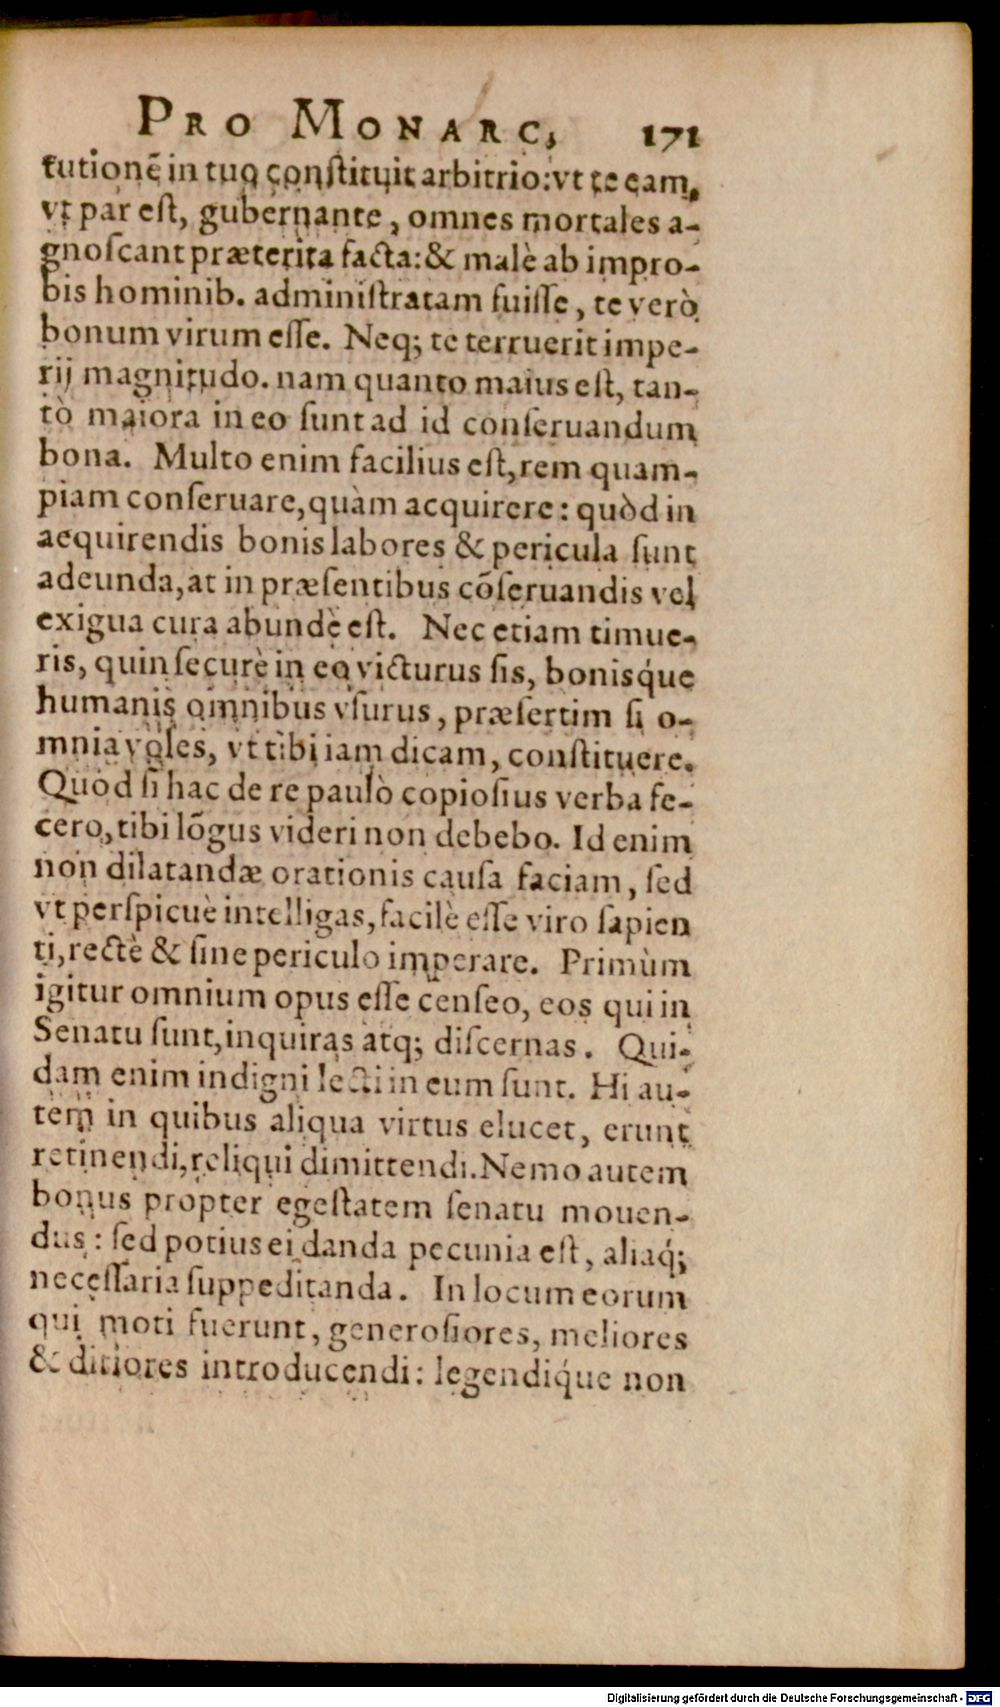 PRO MONARC, 171
tutionē in tuo constituit arbitrio: vt te eam,
vt par est, gubernante, omnes mortales a-
gnoscant præterita facta: & malè ab impro-
bis hominib. administratam fuisse, te verò
bonum virum esse. Neq; te terruerit impe-
rij magnitudo. nam quanto maius est, tan-
tò maiora in eo sunt ad id conseruandum
bona. Multo enim facilius est, rem quam-
piam conseruare, quàm acquirere: quòd in
acquirendis bonis labores & pericula sunt
adeunda, at in præsentibus cōseruandis vel
exigua cura abundè est. Nec etiam timue-
ris, quin securè in eo victurus sis, bonisq́ue
humanis omnibus vsurus, præsertim si o-
mnia voles, vt tibi iam dicam, constituere.
Quòd si hac de re paulò copiosius verba fe-
cero, tibi lōgus videri non debebo. Id enim
non dilatandæ orationis causa faciam, sed
vt perspicuè intelligas, facilè esse viro sapien
ti, rectè & sine periculo imperare. Primùm
igitur omnium opus esse censeo, eos qui in
Senatu sunt, inquiras atq; discernas. Qui-
dam enim indigni lecti in eum sunt. Hi au-
tem in quibus aliqua virtus elucet, erunt
retinendi, reliqui dimittendi. Nemo autem
bonus propter egestatem senatu mouen-
dus: sed potius ei danda pecunia est, aliaq́;
necessaria suppeditanda. In locum eorum
qui moti fuerunt, generosiores, meliores
& ditiores introducendi: legendiq́ue non
Digitalisierung gefördert durch die Deutsche Forschungsgemeinschaft - DFG